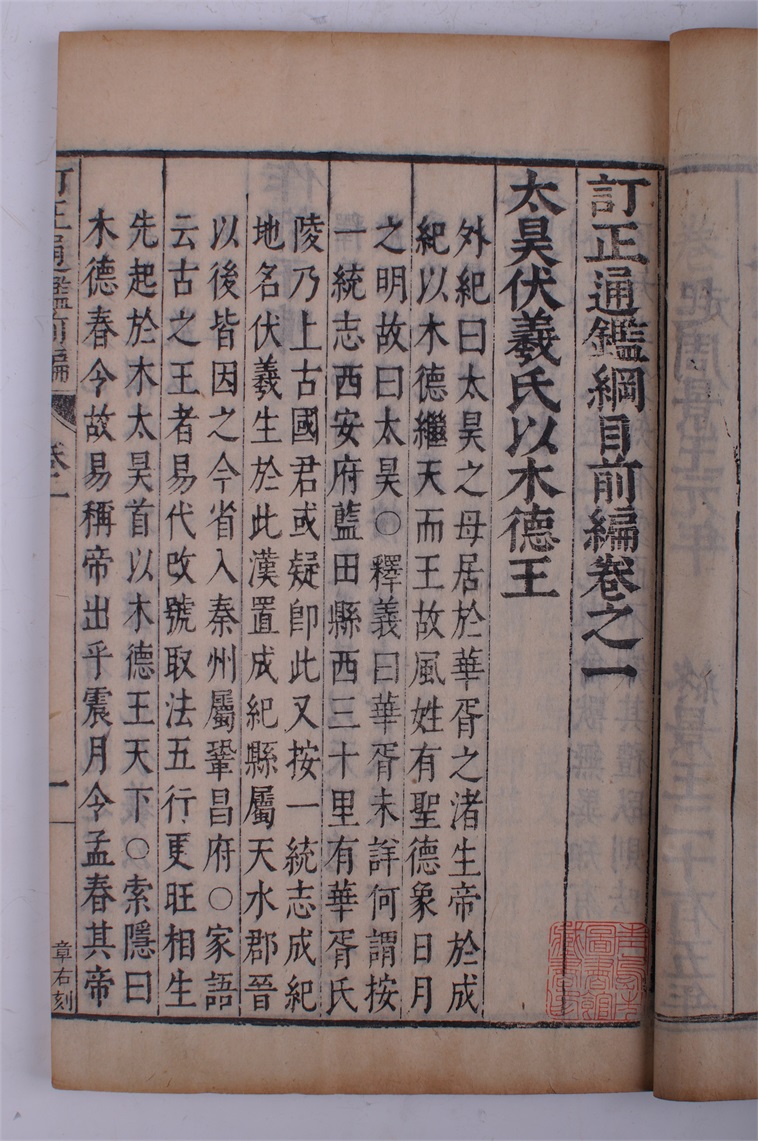 訂正通鑑綱目前編卷之一
太昊伏羲氏以木德王
外紀曰太昊之母居於華胥之渚生帝於成
紀以木德繼天而王故風姓有聖德象日月
之明故曰太昊○釋義曰華胥未詳何謂按
一統志西安府藍田縣西三十里有華胥氏
陵乃上古國君或疑卽此又按一統志成紀
地名伏羲生於此漢置成紀縣屬天水郡晉
以後皆因之今省入秦州屬鞏昌府○家語
云古之王者易代改號取法五行更旺相生
先起於木太昊首以木德王天下○索隱曰
木德春令故易稱帝出乎震月令孟春其帝
訂正通鑑前編
卷一
一
章右刻